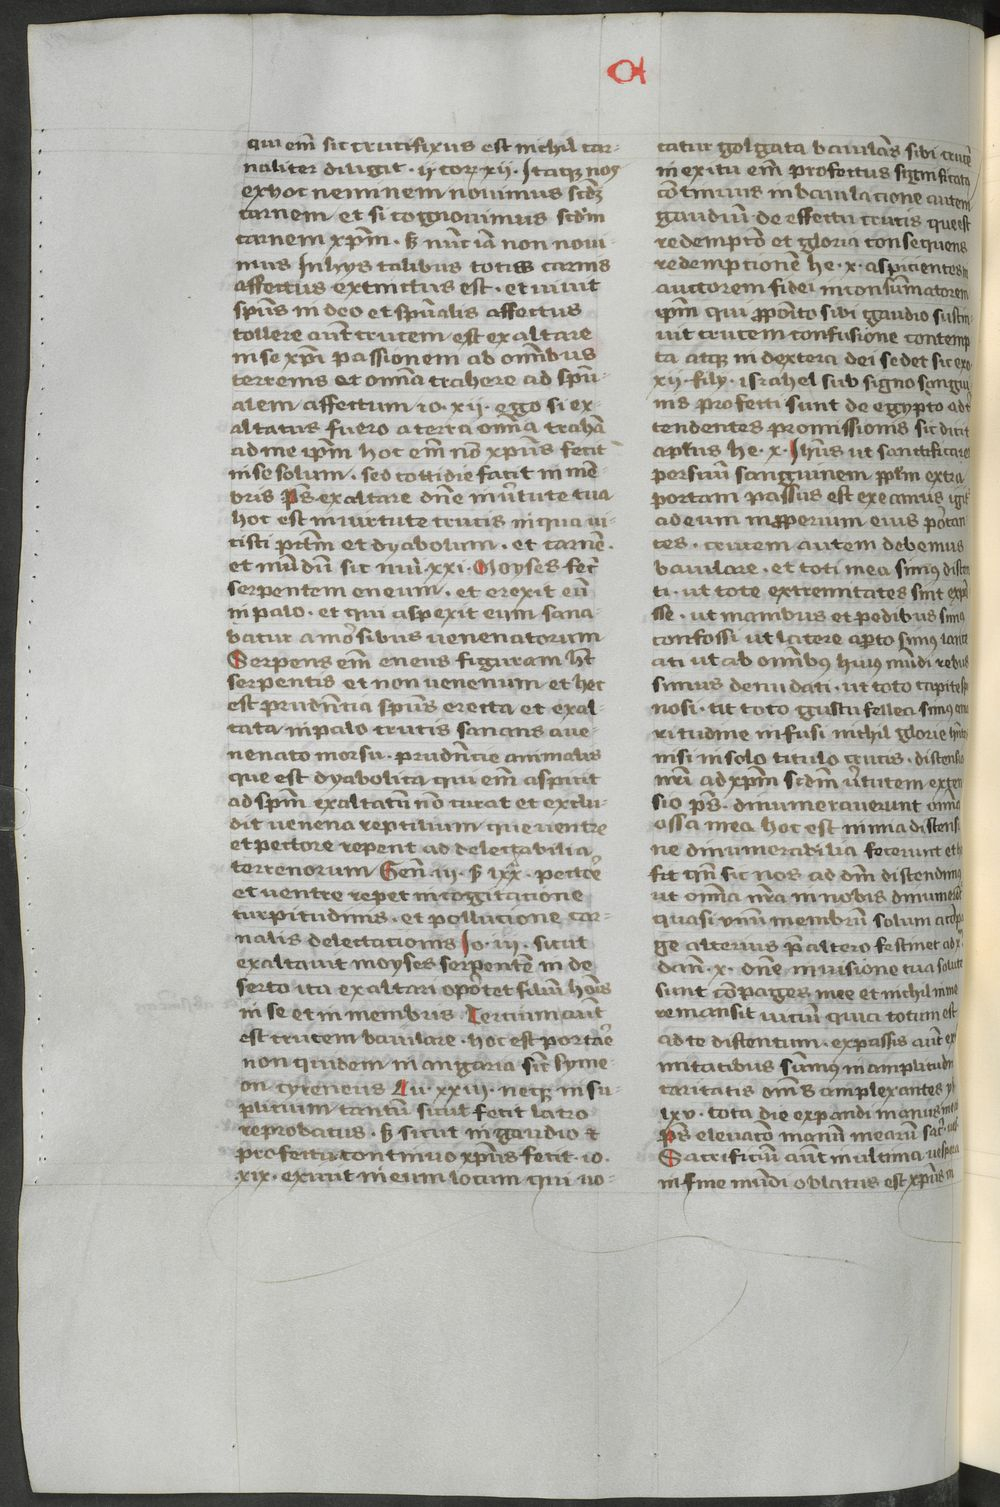 A
qui em̄ sic crucifixus est nichil car-
naliter diligit · ij corꝝ xij · Itaqꝫ nos
ex hoc neminem nouimus scd̄ꝫ
carnem et si cognouimus scd̄m
carnem xp̄m · sꝫ nūc iā non noui-
mus In hys talibus totus carnis
affectus extinctus est · et uiuit
sp̄us in deo et sp̄ualis affectus
tollere aūt crucem est exaltare
in se xp̄i passionem ab omībus
terrenis et omīa trahere ad sp̄u-
alem affectum io · xii · ego si ex-
altatus fuero a terra omīa trahā
ad me ip̄m hoc em̄ nō xp̄us fecit
in se solum · sed cottidie facit in mē-
bris p̄s exaltare dn̄e in v̓tute tua
hoc est in uirtute crucis in qua ui-
cisti pctm̄ et dyabolum · et carnē ·
et mūdū sic nūi xxi · Moyses fec̓
serpentem eneum · et erexit eū
in palo · et qui aspexit eum sana-
batur a mo̓sibus uenenatorum
Serpens em̄ eneus figuram hꝫt
serpentis et non uenenum et hec
est prudn̄cia sp̄us erecta et exal-
tata in palo crucis sanans a ue-
nenato morsu · prudn̄cie animalis
que est dyabolica qui em̄ aspicit
ad sp̄m exaltatū nō curat et exclu-
dit uenena reptilium que uentre
et pectore repent ad delectabilia
terrenorum Gen̄ · iij · sꝫ lxx · pecto̓e
et uentre repet in coggitacione
turpitudinis · et pollucione car-
nalis delectacionis Io · iij · sicut
exaltauit moyses serpentē in de
serto ita exaltari opo̓tet filiū hoīs
in se et in membris Tercium aūt
est crucem baiulare · hoc est porta̓e
non quidem in angaria sic̄ syme-
on cyreneus Lu · xxiij · neqꝫ in su-
plicium tantū sicut fecit latro
reprobatus · sꝫ sicut in gaudio et
profectu continuo xp̄us fecit · io ·
xix · exiuit in eum locum qui uo-
catur golgata baiulās sibi crucē
in exitu em̄ profectus significata
cōtinuus in baiulacione autem
gaudiū de effectu crucis que est
redempcō et gloria consequens
redempcionē he · x · aspicientes in
auctorem fidei in consūmatorem
ip̄m qui p̄poīto sibi gaudio sustin-
uit crucem confusione contemp-
ta atqꝫ in dextera dei sedet sic exo
xij · filij · israhel sub signo sangui
nis profecti sunt de egypto ad t̄
tendentes promissionis sic dicit
ap̄lus he · x · Ihūs ut sanctificaret
per suū sanguinem pplm̄ extra
portam passus est exeamus igit̓
ad eum inproperium eius po̓tan
tes · crucem autem debemus
baiulare · et toti in ea simus disten
ti · ut tote extremitates sint expā
sse · ut manibus et pedibus simus
confossi ut latere ap̄to simus lance
ati ut ab omībus huius mūdi rebus
simus denudati · ut toto capite spi
nosi · ut toto gustu fellea simus ama
ritudine infusi nichil glorie hn̄tes
nisi in solo titulo crucis · distensio
nr̄i ad xp̄m scd̄m v̓tutem exten
sio p̄s · dinumerauerunt omīa
ossa mea hoc est in mia distensi
ne dinumerabilia fecerunt et h
fit cū sic nos ad dm̄ distendimus
ut omīa nr̄a in nobis dinumerēt̓
quasi unū membrū solum a compa
ge alterius p̄ altero festinet ad x
dan̄ · x · dn̄e in uisione tua solute
sunt cōpages mee et nichil in me
remansit uirium quia totum est
ad te distentum · expassis aūt ex
mitatibus sūmus in amplitudn̄
caritatis omn̄s amplexantes ys
lxv · tota die expandi manus meas
p̄s eleuacō manuū mearū sac̓
Sacrificiū aūt in ultima uespera
in fine mūdi oblatus est xp̄us in